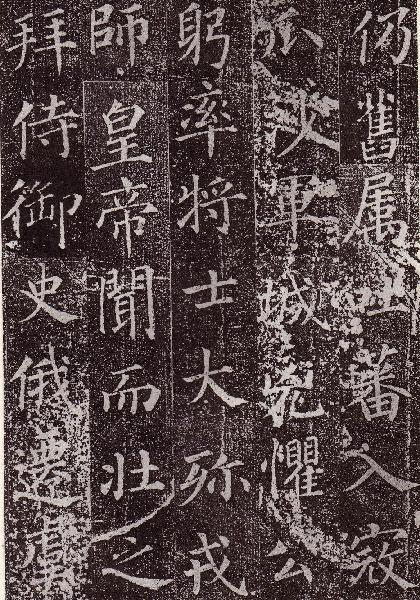 仍舊属吐蕃入寇
軍城兇懼公
躬率將士大殄戎
師皇帝聞而壯之
拜侍御史俄遷虞